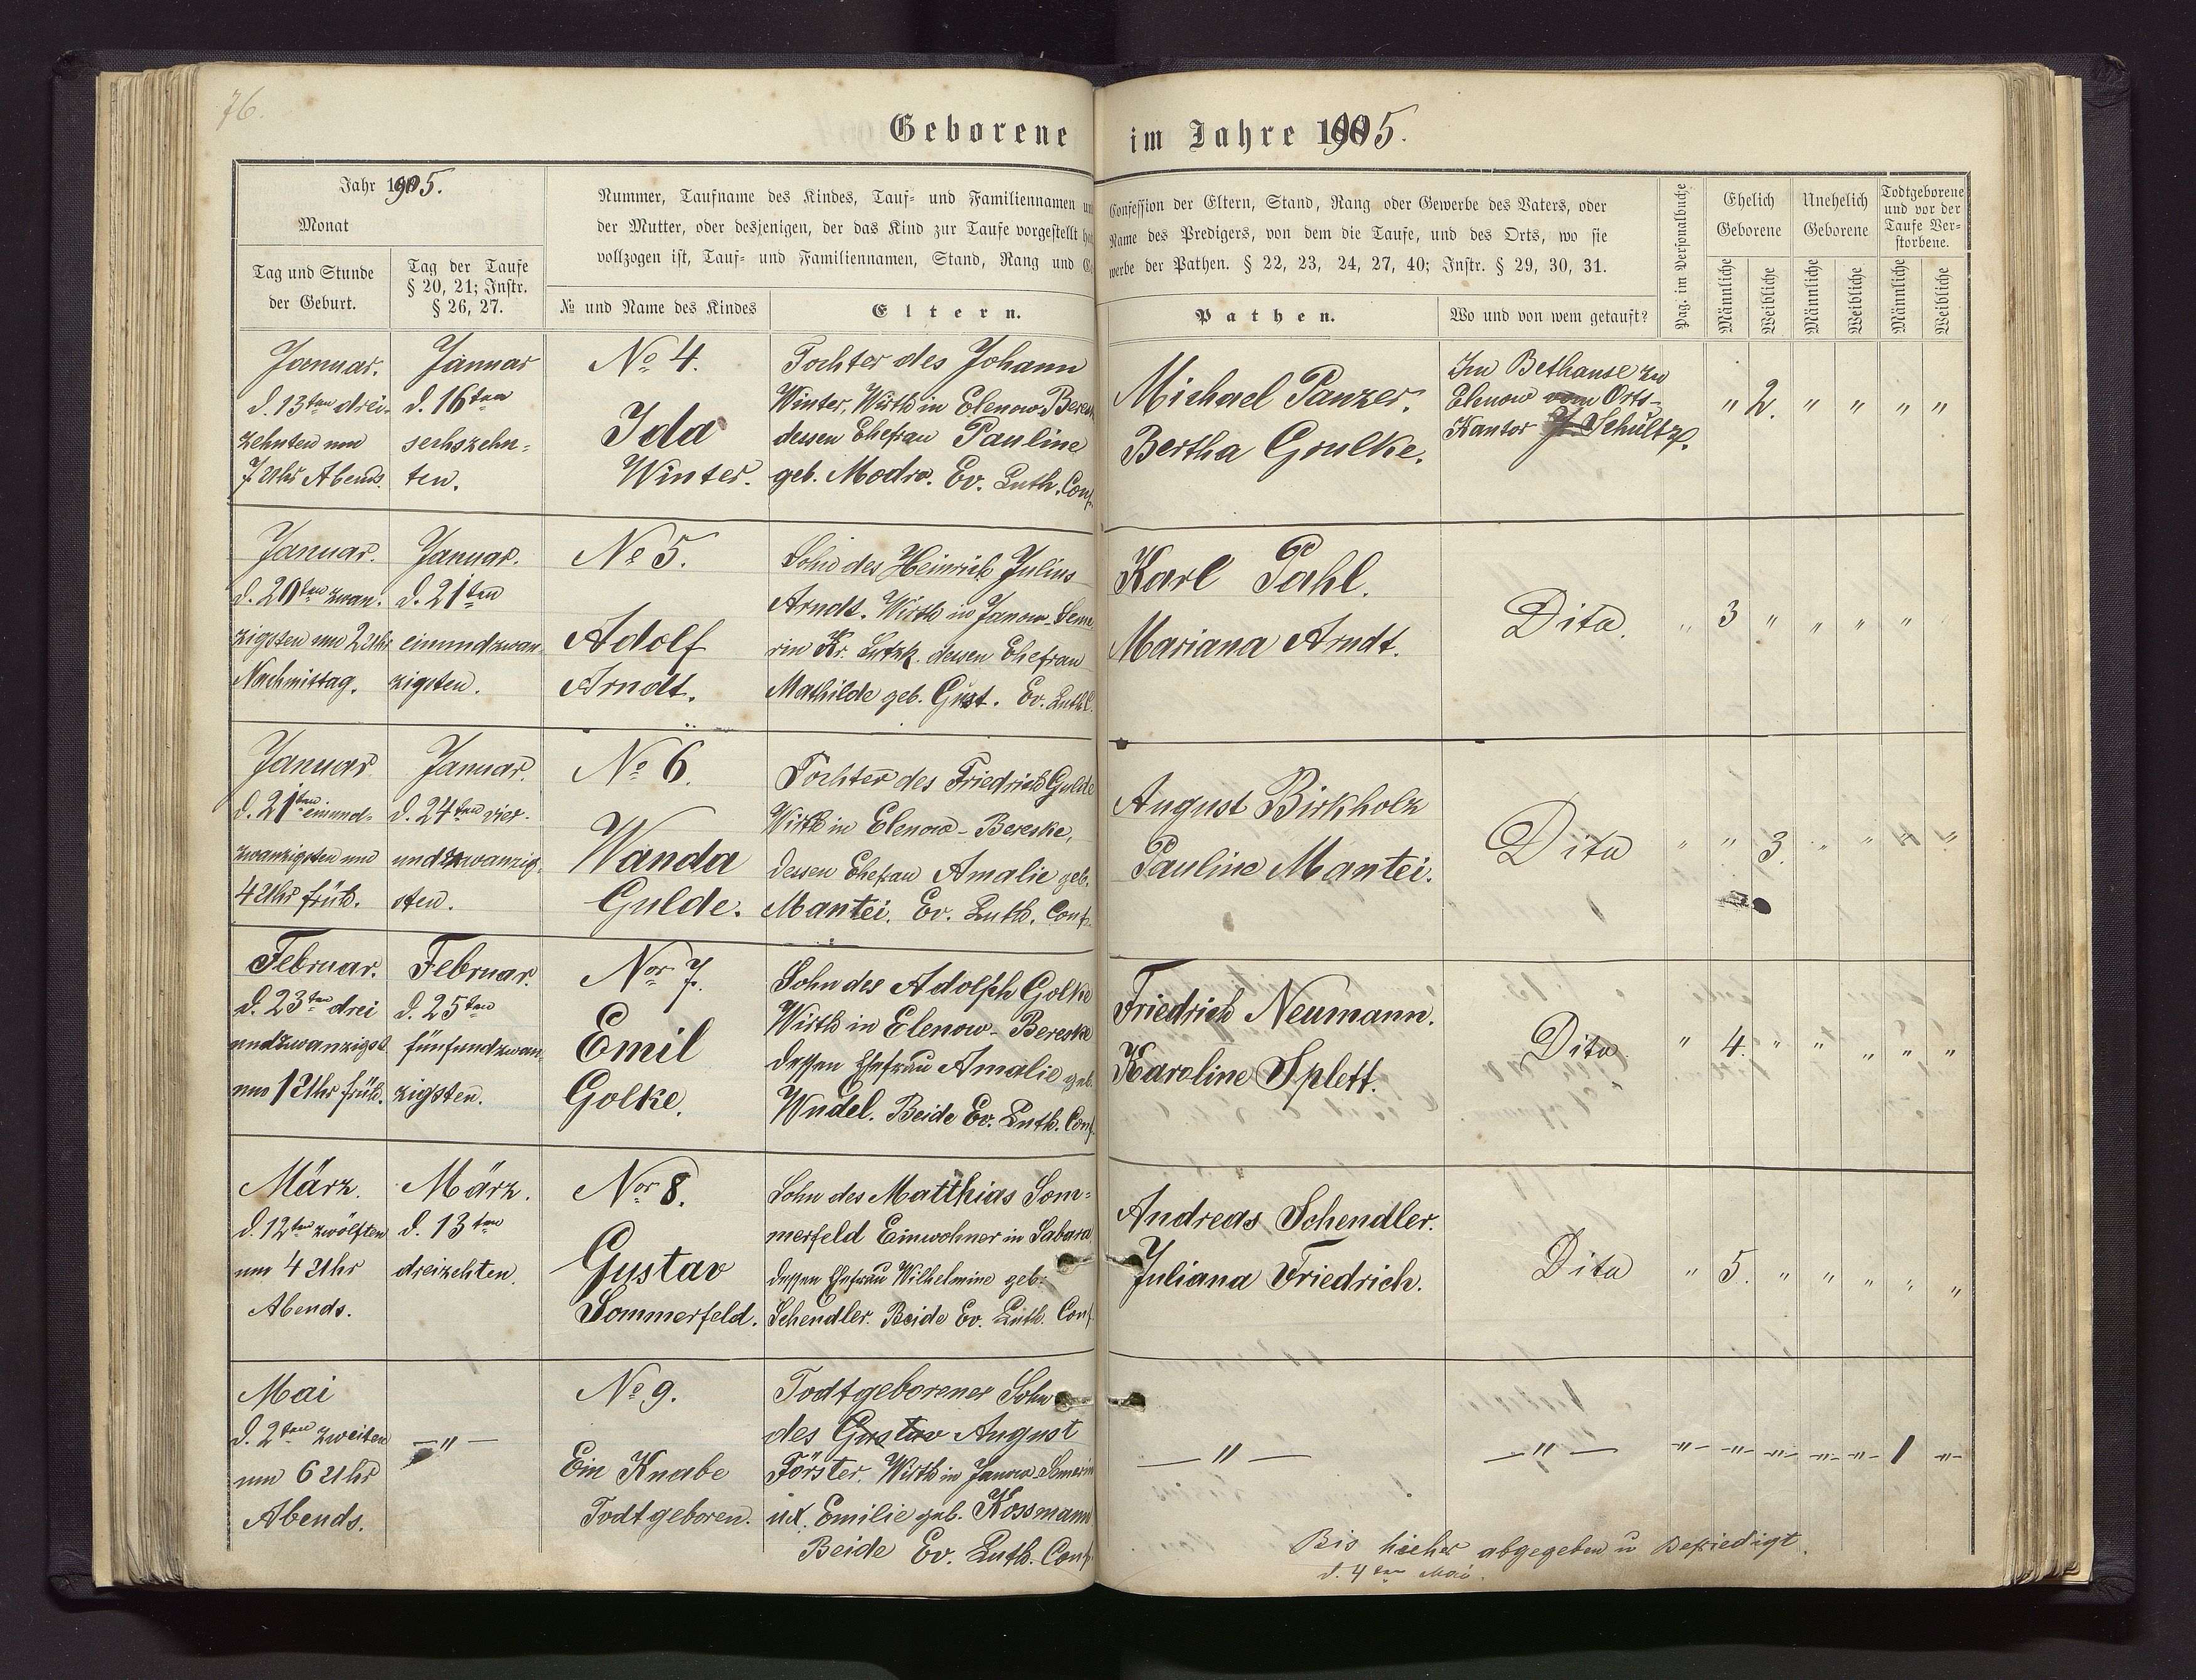 76.
Geborene im Jahre 1905.
Jahr 1905.
Monat
Tag und Stunde
der Geburt.
Tag der Taufe
§ 20, 21; Instr.
§ 26, 27.
Nummer, Taufname des Kindes, Tauf- und Familiennamen
der Mutter, oder desjenigen, der das Kind zur Taufe vorgestellt
vollzogen ist, Tauf- und Familiennamen, Stand, Rang und
№ und Name des Kindes
Eltern.
Confession der Eltern, Stand, Rang oder Gewerbe des Vaters, oder
Name des Predigers, von dem die Taufe, und des Orts, wo sie
werbe der Pathen. § 22, 23, 24, 27, 40; Instr. § 29, 30, 31.
Pathen.
Wo und von wem getauft?
Pag. im Personalbuche
Ehelich
Geborene
Unehelich
Geborene
Todtgeborene
und vor der
Taufe Ver-
storbene.
Männliche
Weibliche
Männliche
Weibliche
Männliche
Weibliche
Januar.
d. 13ten drei-
zehnten um
7 Uhr Abends.
Januar
d. 16ten
sechszehn-
ten.
No 4.
Ida
Winter.
Tochter des Johann
Winter, Wirth in Elenow-Beresk
dessen Ehefrau Pauline
geb. Modro. Ev. Luth. Conf.
Michael Panzer.
Bertha Grulke.
Im Bethause zu
Elenow vom Orts-
Kantor Schultz.
" 2. " " " "
Januar.
d. 20ten zwan-
zigsten um 2 Uhr
Nachmittag.
Januar.
d. 21ten
einundzwan-
zigsten.
No 5.
Adolf
Arndt.
Sohn des Heinrich Julius
Arndt. Wirth in Janow-Seme
rin Kr. Lutzk. dessen Ehefrau
Mathilde geb. Gust. Ev. Luth. C.
Karl Pahl.
Mariana Arndt.
Dito.
" 3 " " " "
Januar
d. 21ten einund-
zwanzigsten um
4 Uhr früh.
Januar.
d. 24ten vier-
undzwanzig-
sten.
No 6.
Wanda
Gulde.
Tochter des Friedrich Gulde
Wirth in Elenow-Bereske,
dessen Ehefrau Amalie geb.
Mantei. Ev. Luth. Conf.
August Birkholz
Pauline Mantei.
Dito
" " 3. " " " "
Februar.
d. 23ten drei
undzwanzigst
um 1 Uhr früh.
Februar.
d. 25ten
fünfundzwan-
zigsten.
Nor 7.
Emil
Golke.
Sohn des Adolph Golke
Wirth in Elenow-Bereske
dessen Ehefrau Amalie geb.
Wudel. Beide Ev. Luth. Conf.
Friedrich Neumann.
Karoline Splett.
Dito
" 4. " " " " "
März.
d. 12ten zwölften
um 4 Uhr
Abends.
März.
d. 13ten
dreizehten.
Nor 8.
Gustav
Sommerfeld.
Sohn des Matthias Som-
merfeld Einwohner in Sabara
dessen Ehefrau Wilhelmine geb.
Schendler. Beide Ev. Luth. Conf.
Andreas Schendler.
Juliana Friedrich.
Dito
" 5. " " " " "
Mai
d. 2ten zweiten
um 6 Uhr
Abends.
— " —
No 9.
Ein Knabe
Todtgeboren.
Todtgeborener Sohn
des Gustav August
Förster. Wirth in Janow-Semerin
u. Emilie geb. Kossmann
Beide Ev. Luth. Conf.
— " —
— " —
" " " " " 1 "
Bis hieher abgegeben u Befriedigt.
d. 4ten Mai.